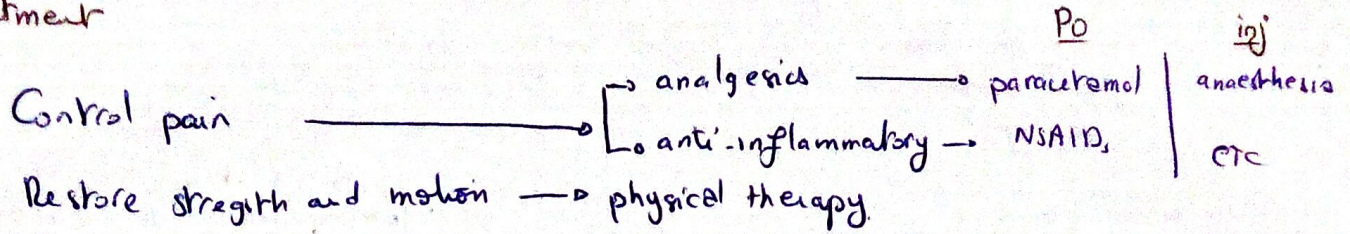 tment
Po inj
Control pain → analgesics → paracetemol | anaesthesia
anti-inflammatory → NSAIDs | CTC
Restore stregth and motion → physical therapy.